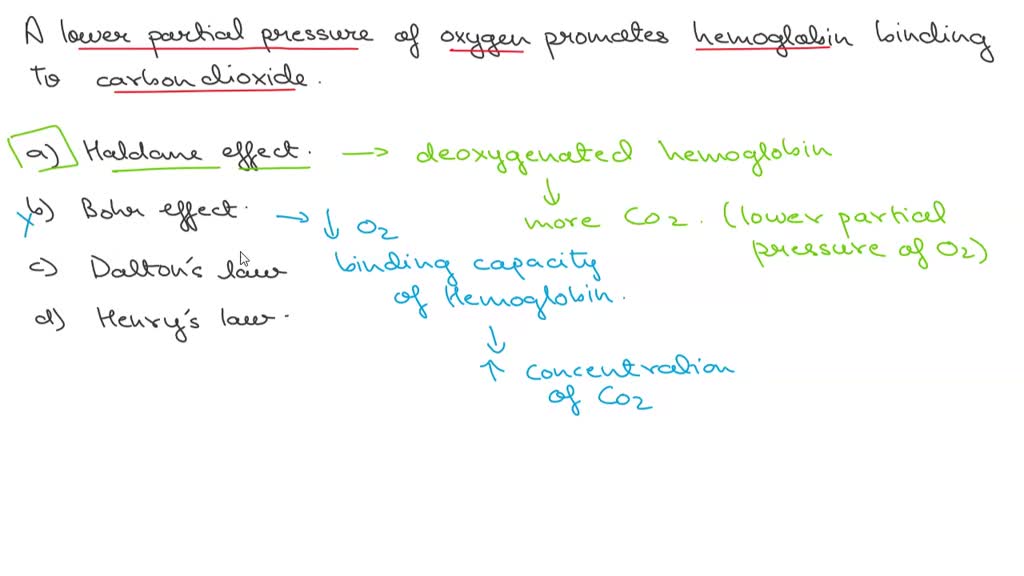 A lower partial pressure of oxygen promotes hemoglobin binding
to carbon dioxide.
a) Haldane effect. → deoxygenated hemoglobin
↓
more CO2. (lower partial
pressure of O2)
x b) Bohr effect. → ↓ O2
binding capacity
of Hemoglobin.
↓
↑ concentration
of CO2
c) Dalton's law
d) Henry's law.